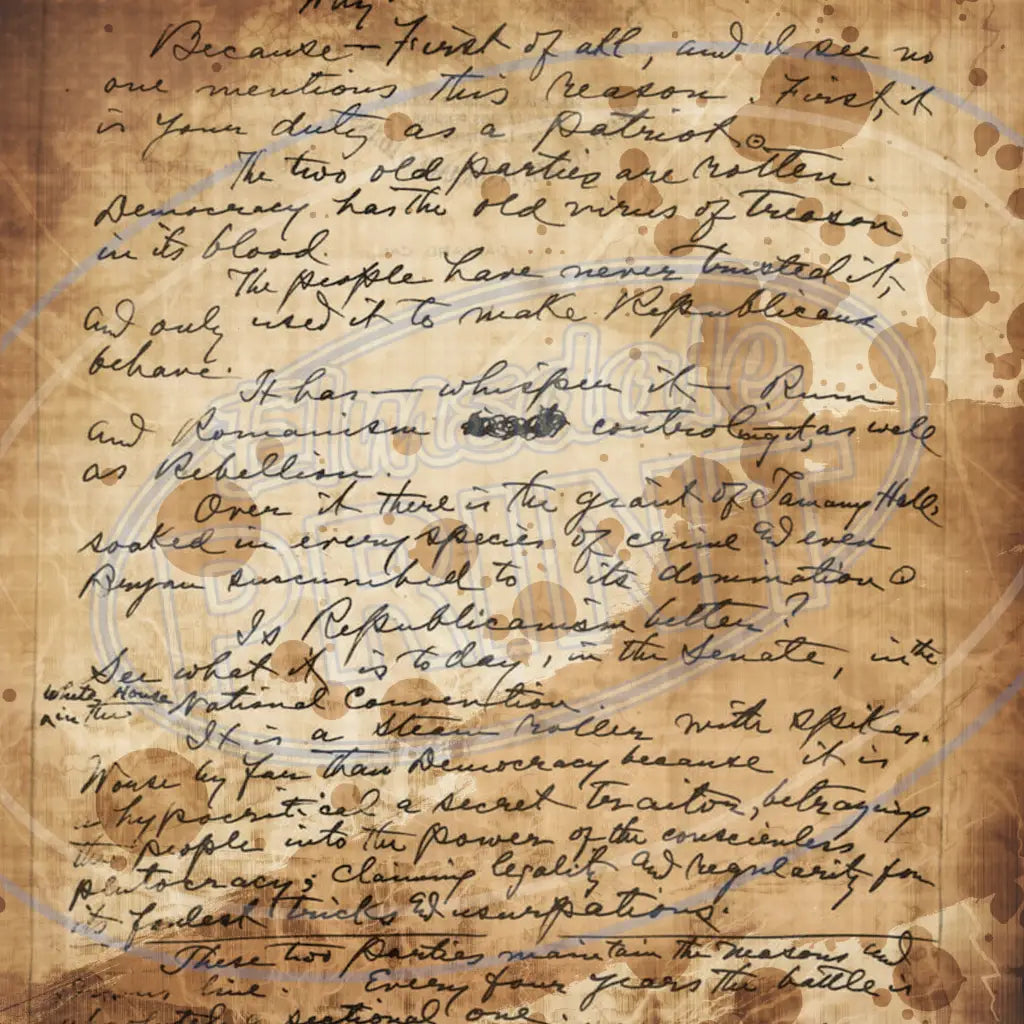 Why
Because — First of all, and I see no
one mentions this reason. First, it
is your duty as a Patriot.
The two old parties are rotten.
Democracy has the old virus of Treason
in its blood.
The people have never trusted it,
and only used it to make Republicans
behave.
It has — whisper it — Rum
and Romanism controlling it, as well
as Rebellion.
Over it there is the giant of Tamany Hall,
soaked in every species of crime and even
Bryan succumbed to its domination
Is Republicanism better?
See what it is today, in the Senate, in the
White House
in the National Convention
It is a steam roller with spikes.
Worse by far than Democracy because it is
hypocritical a secret traitor, betraying
the people into the power of the conscienless
plutocracy; claiming legality and regularity for
its foulest tricks and usurpations.
These two Parties maintain the Masons and
line. Every four years the battle is
a sectional one.
Hinsdale
PRINT